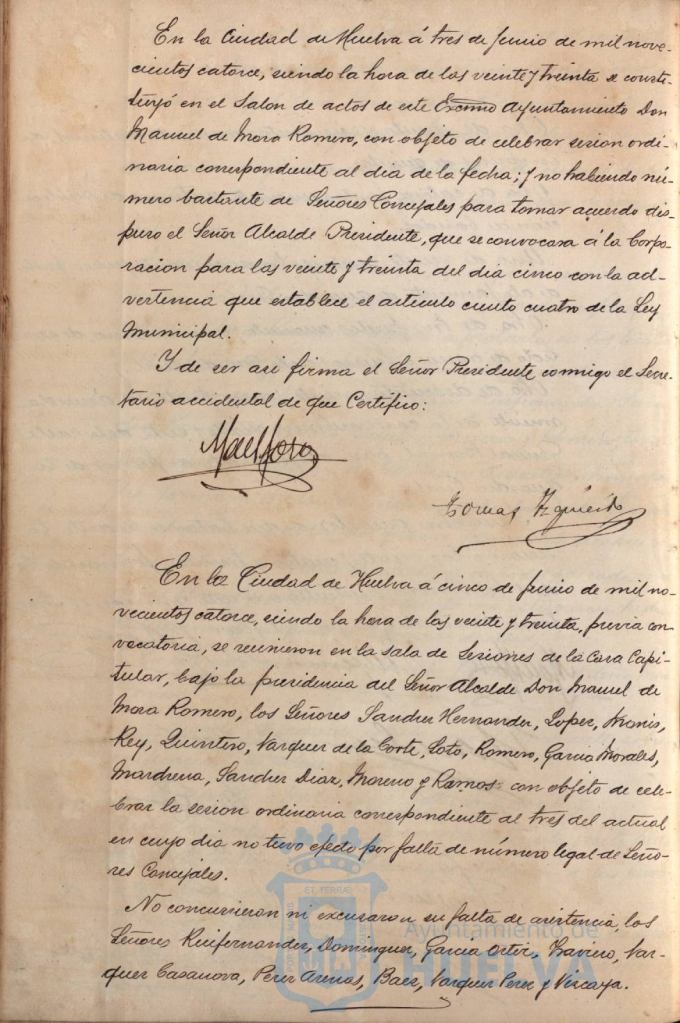 En la Ciudad de Huelva á tres de Junio de mil nove-
cientos catorce, siendo la hora de las veinte y treinta se consti-
tuyó en el Salon de actos de este Excmo Ayuntamiento Don
Manuel de Mora Romero, con objeto de celebrar sesion ordi-
naria correspondiente al dia de la fecha; y no habiendo nú-
mero bastante de Señores Concejales para tomar acuerdo dis-
puso el Señor Alcalde Presidente, que se convocara á la Corpo-
racion para las veinte y treinta del dia cinco con la ad-
vertencia que establece el articulo ciento cuatro de la Ley
Municipal.
Y de ser asi firma el Señor Presidente conmigo el Secre-
tario accidental de que Certifico:
Tomas Izquierdo
En la Ciudad de Huelva á cinco de Junio de mil no-
vecientos catorce, siendo la hora de las veinte y treinta, previa con
vocatoria, se reunieron en la sala de Sesiones de la Casa Capi-
tular, bajo la presidencia del Señor Alcalde Don Manuel de
Mora Romero, los Señores Sanchez Hernandez, Lopez, Monis,
Rey, Quintero, Vazquez de la Corte, Soto, Romero, Garcia Morales,
Mardrena, Sanchez Diaz, Moreno y Ramos con objeto de cele-
brar la sesion ordinaria correspondiente al tres del actual
en cuyo dia no tuvo efecto por falta de número legal de Seño-
res Concejales.
No concurrieron ni excusaron su falta de asistencia, los
Señores Ruifernandez, Dominguez, Garcia Ortiz, Traviero, Vaz-
quez Casanova, Perez Arenas, Baez, Vazquez Perez y Vizcaya.
Ayuntamiento de
HUELVA